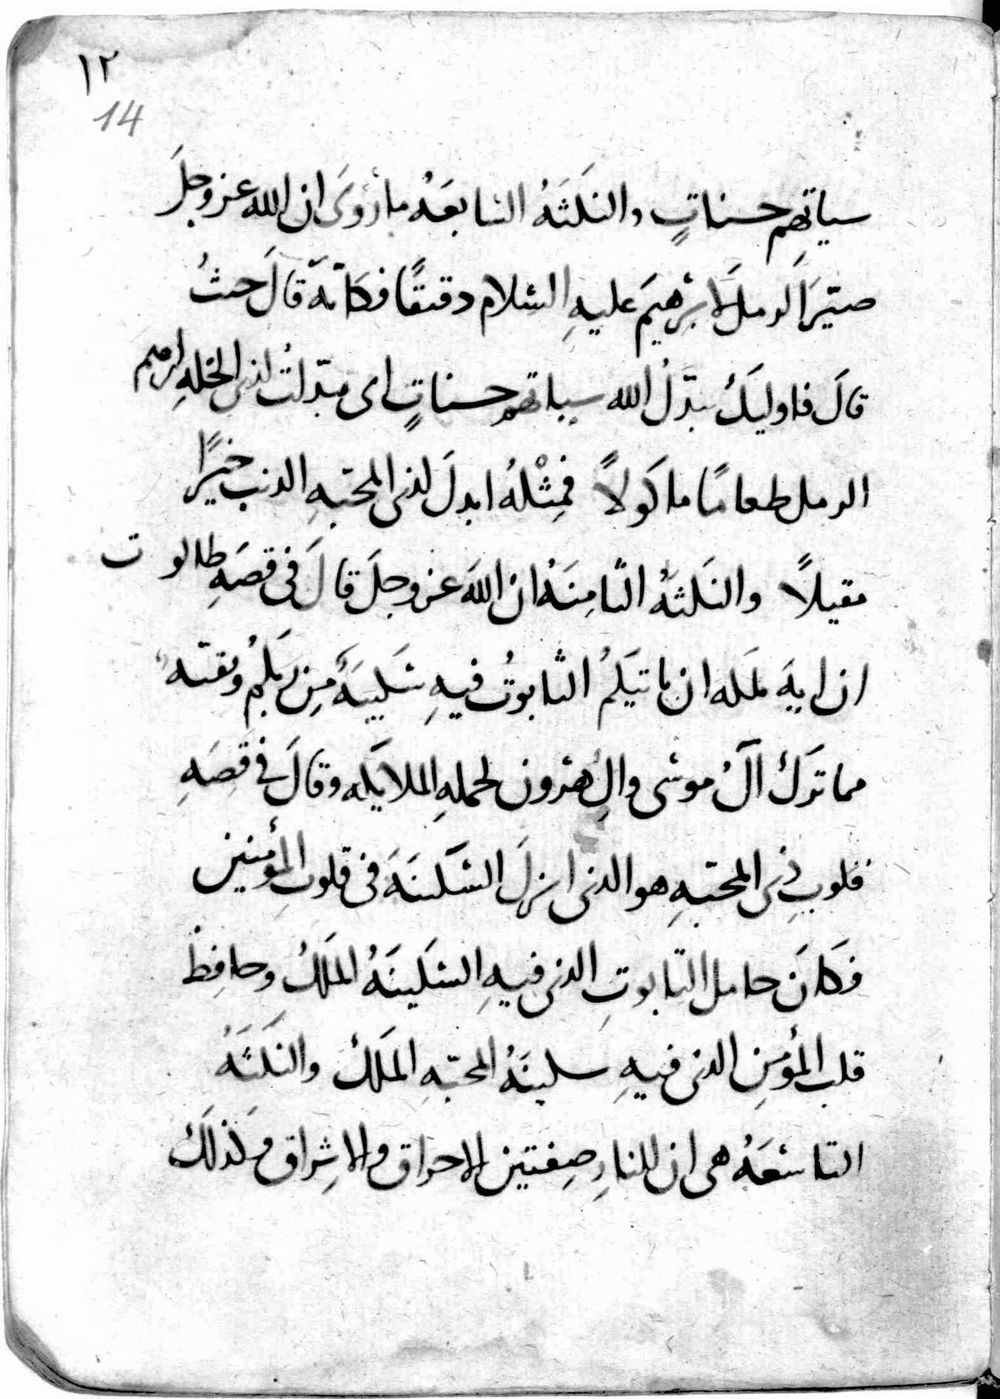 ١٢
14
سياتهم حسناتٍ والنكتهُ السابعَهُ ما رُوىَ ان الله عز وجلَ
صيّرَ الرملَ لابرٰهيمَ عليهِ السلام دقيقًا فكانّهُ قالَ حيثُ
قالَ فاوليكَ يبدّلُ الله سياتهم حسناتٍ اى بدّلتُ لذى الخله ابرٰهيم
الرمل طعامًا ماكَولاً فمِثْلهُ ابدلَ لذى المحبّهِ الذنب خيرًا
مقيلاً والنَكتهُ الثامِنَهُ ان اللهَ عز وجلَ قالَ فى قصَهِ طالوت
ان ايهَ ملكه ان ياتيكمُ التابوتُ فيهِ سَكينهٌ مِن ربكمُ وبقيّه
مما تركَ آلُ موسى وال هٰرون تحمله الملايكه وقالَ فى قصَهِ
قلوبِ ذى المحبّهِ هو الذى انزلَ السَكينَهَ فى قلوبِ المؤمنين
فكَانَ حامل التابوتِ الذى فيهِ السَكينَهُ المَلَكُ وحافِظُ
قلب المؤمنِ الذى فيهِ سكينَهُ المحبّهِ المَلَكُ والنَكتَهُ
التاسعَهُ هى ان للنارِ صِفتين الاحراق والاشراق وكذلكَ